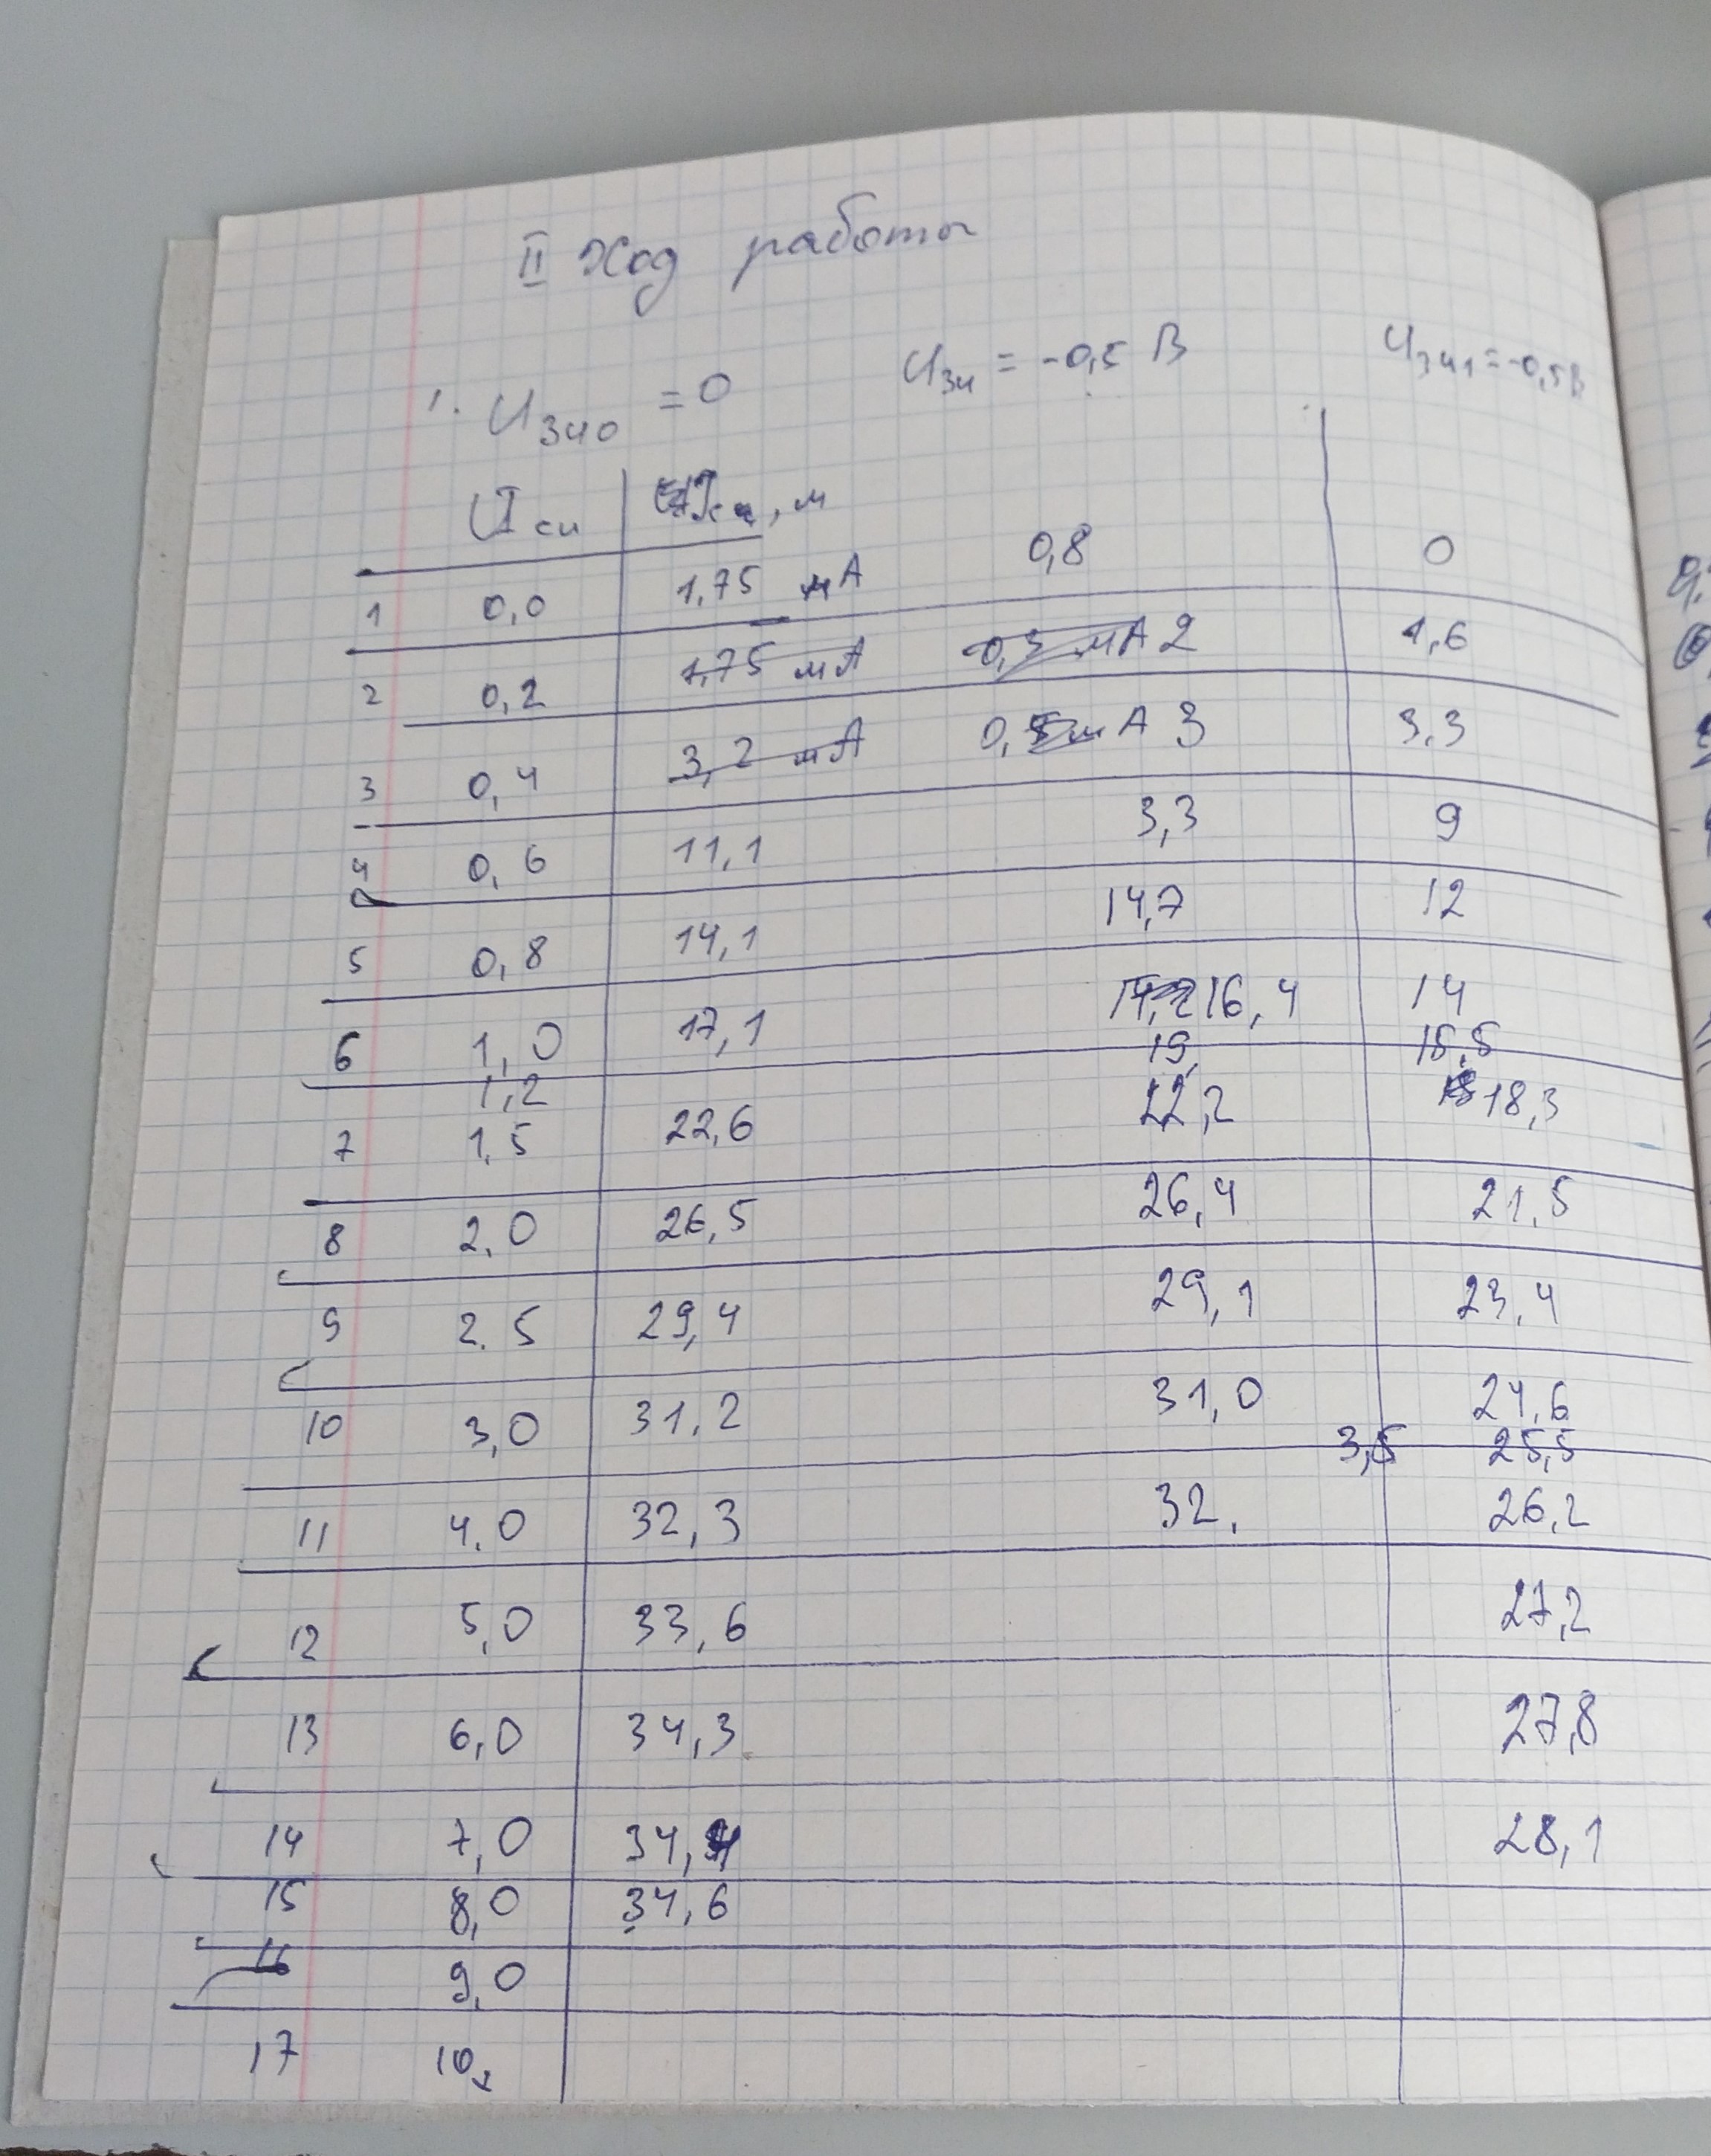 II Ход работы
1. UЗИ0 = 0 UЗИ = -0,5 В UЗИ1 = -0,5В
Uси , м
1 0,0 1,75 мА 0,8 0
2 0,2 1,75 мА 0,3 мА 2 1,6
3 0,4 3,2 мА 0,5 мА 3 3,3
4 0,6 11,1 3,3 9
5 0,8 14,1 14,7 12
6 1,0 17,1 14,2 16,4 14
1,2 19, 15,5
7 1,5 22,6 22,2 18,3
8 2,0 26,5 26,4 21,5
9 2.5 29,4 29,1 23,4
10 3,0 31,2 31,0 24,6
3,5 25,5
11 4,0 32,3 32, 26,2
12 5,0 33,6 27,2
13 6,0 34,3 27,8
14 7,0 34,4 28,1
15 8,0 34,6
16 9,0
17 10,